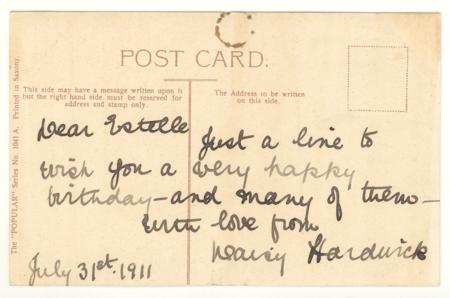 POST CARD.
This side may have a message written upon it
but the right hand side must be reserved for
address and stamp only.
The Address to be written
on this side.
The "POPULAR" Series No. 1041 A. Printed in Saxony.
Dear Estelle Just a line to
wish you a very happy
birthday - and many of them -
With love from
Daisy Hardwick
July 31st. 1911